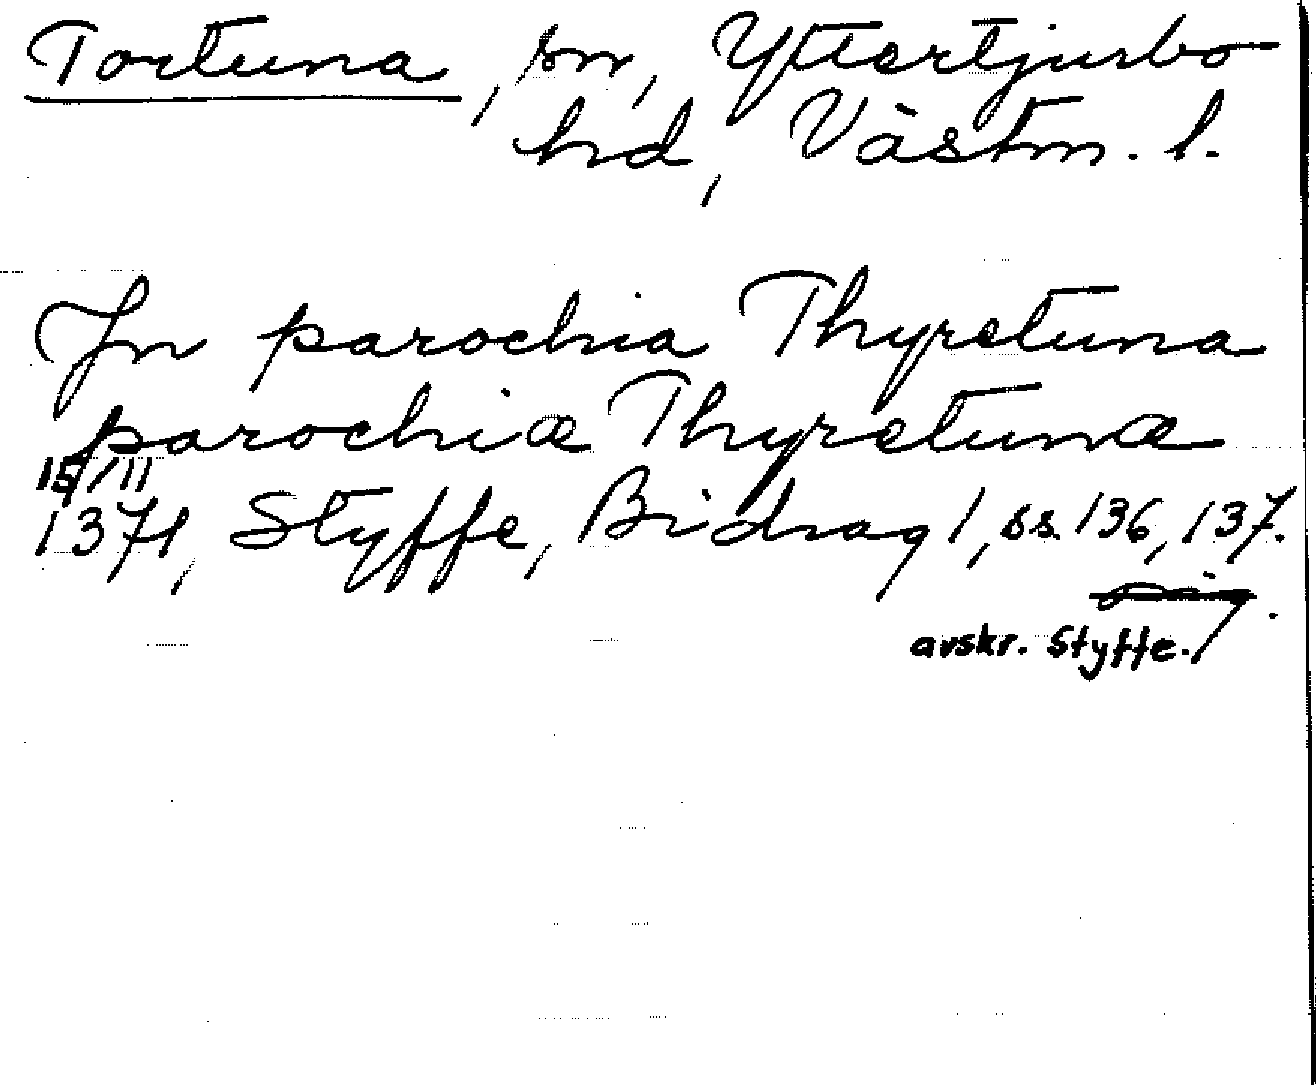 Tortuna, sn, Yttertjurbo
hd, Västm. l.
In parochia Thyretuna
parochiæ Thyretunæ
15/11
1371, Styffe, Bidrag 1, ss. 136, 137.
avskr. Styffe.